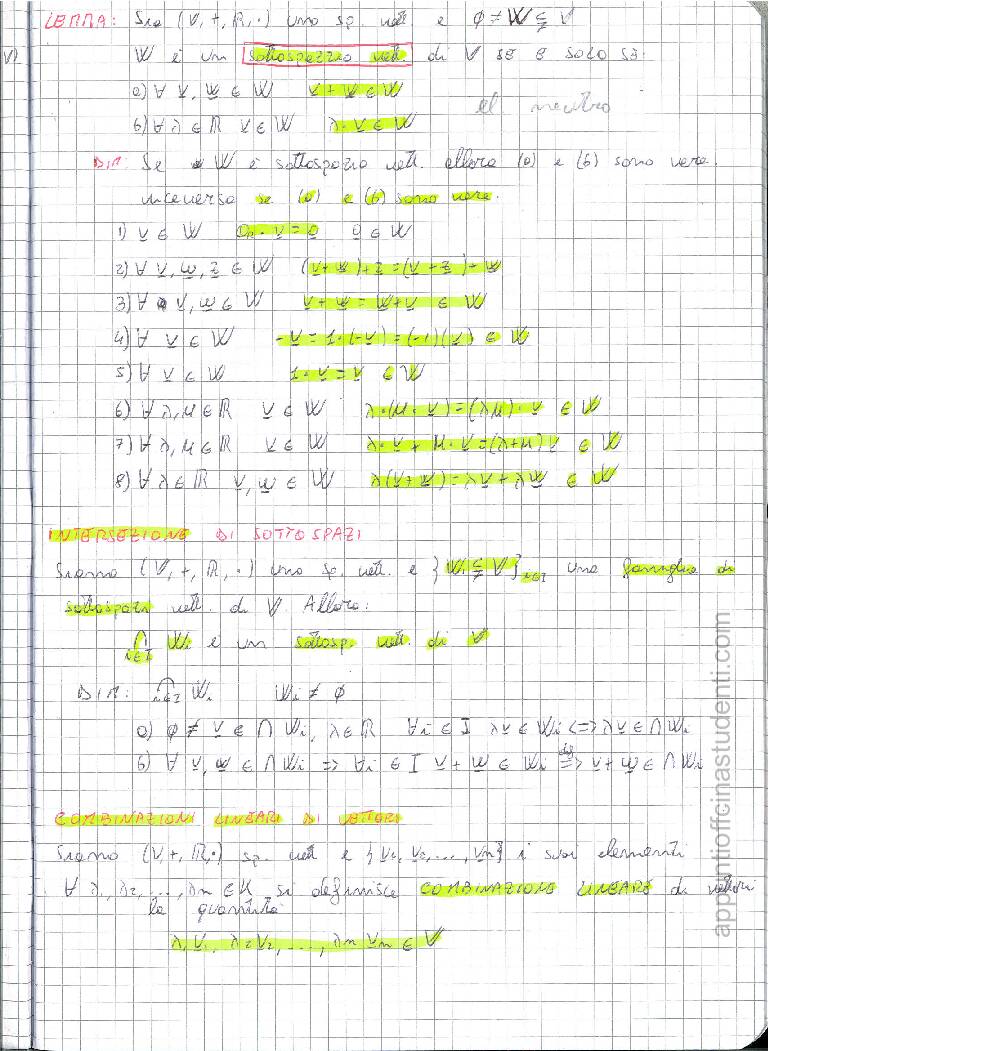 LEMMA: Sia (V, +, ℝ, ·) uno sp. vett. e ∅ ≠ W ⊊ V
V)
W è un sottospazio vett. di V SE E SOLO SE:
a) ∀ v, w ∈ W v + w ∈ W
el neutro
b) ∀ λ ∈ ℝ v ∈ W λ · v ∈ W
DIM: Se W è sottospazio vett. allora (a) e (b) sono vere.
viceversa se (a) e (b) sono vere.
1) v ∈ W 0ℝ · v = 0 0 ∈ W
2) ∀ v, w, z ∈ W (v + w) + z = (v + z) + w
3) ∀ v, w ∈ W v + w = w + v ∈ W
4) ∀ v ∈ W -v = 1 · (-v) = (-1)(v) ∈ W
5) ∀ v ∈ W 1 · v = v ∈ W
6) ∀ λ, μ ∈ ℝ v ∈ W λ · (μ · v) = (λμ) · v ∈ W
7) ∀ λ, μ ∈ ℝ v ∈ W λ · v + μ · v = (λ+μ) v ∈ W
8) ∀ λ ∈ ℝ v, w ∈ W λ(v + w) = λv + λw ∈ W
INTERSEZIONE DI SOTTOSPAZI
Siano (V, +, ℝ, ·) uno sp. vett. e {Wi ⊊ V}i∈I una famiglia di
sottospazi vett. di V. Allora:
⋂i∈I Wi è un sottosp. vett. di V
DIM: ⋂i∈I Wi Wi ≠ ∅
a) ∅ ≠ v ∈ ⋂ Wi, λ ∈ ℝ ∀i ∈ I λv ∈ Wi <=> λv ∈ ⋂ Wi
b) ∀ v, w ∈ ⋂ Wi => ∀i ∈ I v + w ∈ Wi => v + w ∈ ⋂ Wi
COMBINAZIONI LINEARI DI VETTORI
Siano (V, +, ℝ, ·) sp. vett e {v1, v2, ..., vn} i suoi elementi
∀ λ1, λ2, ..., λn ∈ K si definisce COMBINAZIONE LINEARE di vettori
la quantità
λ1v1, λ2v2, ..., λnvn ∈ V
appuntiofficinastudenti.com